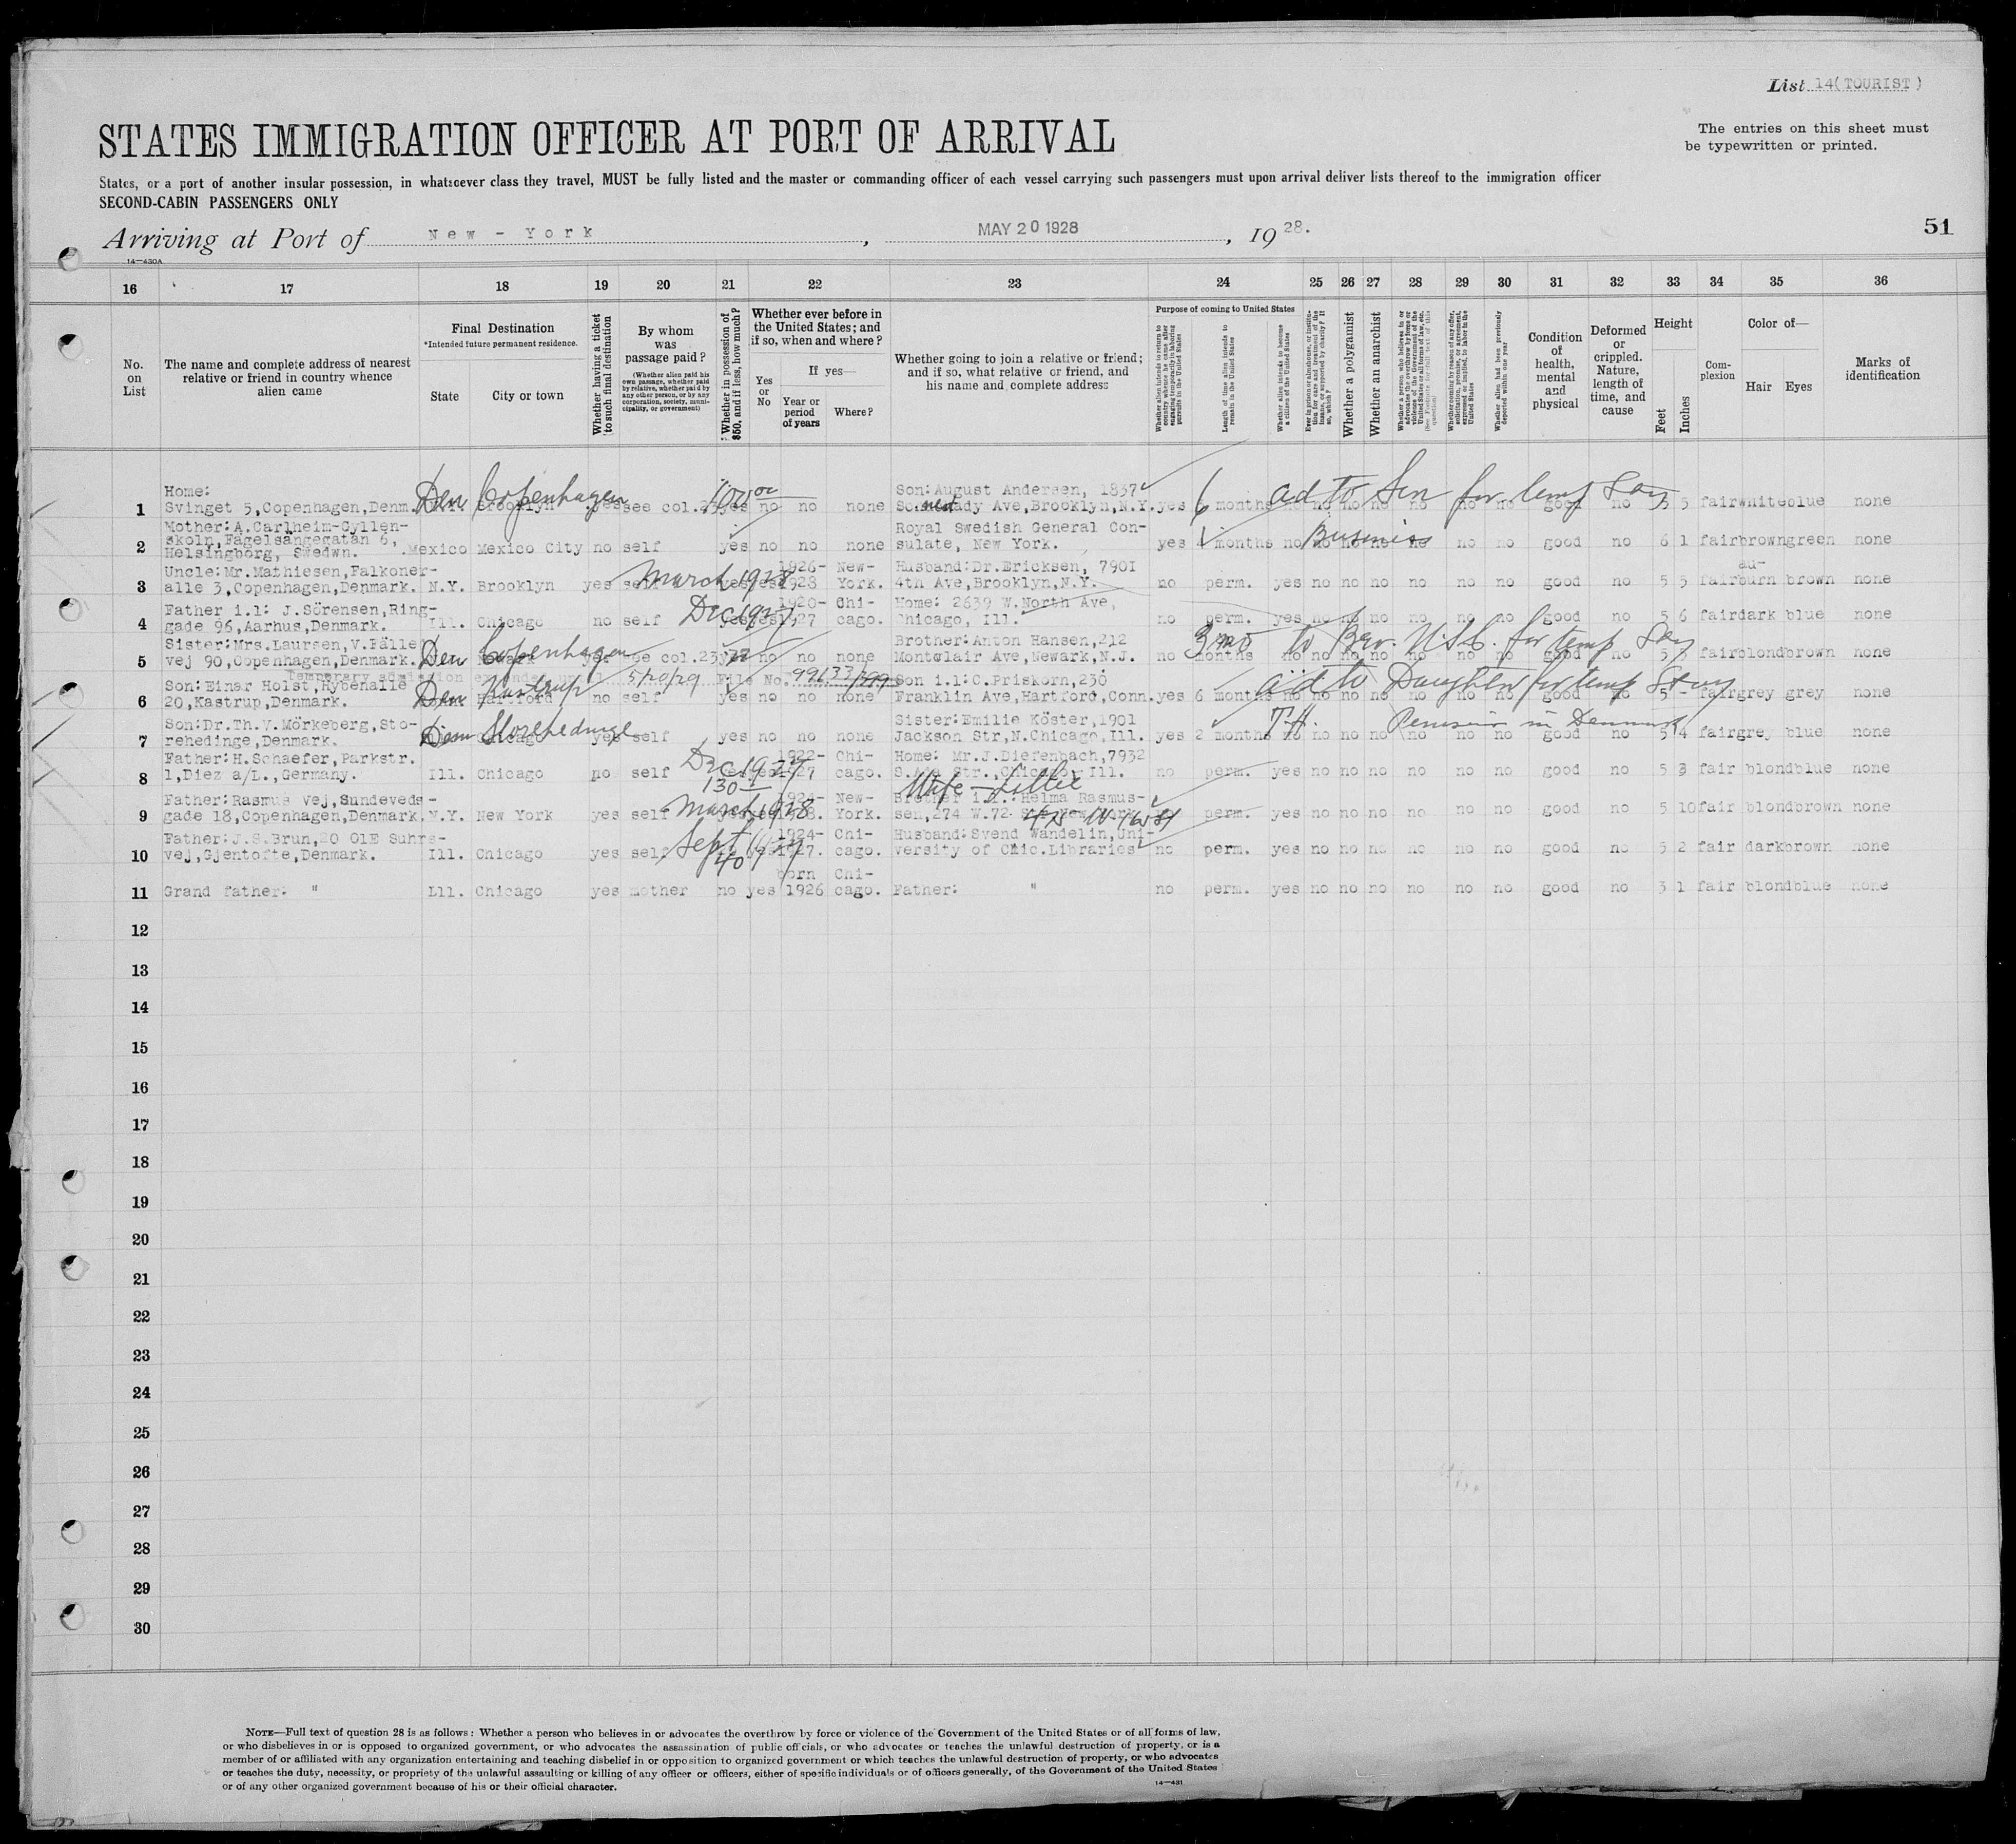 List 14(TOURIST)
STATES IMMIGRATION OFFICER AT PORT OF ARRIVAL
The entries on this sheet must
be typewritten or printed.
States, or a port of another insular possession, in whatsoever class they travel, MUST be fully listed and the master or commanding officer of each vessel carrying such passengers must upon arrival deliver lists thereof to the immigration officer
SECOND-CABIN PASSENGERS ONLY
Arriving at Port of New - York, MAY 20 1928, 1928.
51
14—430A
16 17 18 19 20 21 22 23 24 25 26 27 28 29 30 31 32 33 34 35 36
No. on List
The name and complete address of nearest relative or friend in country whence alien came
Final Destination
*Intended future permanent residence.
State
City or town
Whether having a ticket to such final destination
By whom was passage paid?
(Whether alien paid his own passage, whether paid by relative, whether paid by any other person, or by any corporation, society, municipality, or government)
Whether in possession of $50, and if less, how much?
Whether ever before in the United States; and if so, when and where?
Yes or No
If yes—
Year or period of years
Where?
Whether going to join a relative or friend; and if so, what relative or friend, and his name and complete address
Purpose of coming to United States
Whether alien intends to return to country whence he came after engaging temporarily in laboring pursuits in the United States
Length of time alien intends to remain in the United States
Whether alien intends to become a citizen of the United States
Whether a polygamist
Whether an anarchist
Whether alien had been previously deported within one year
Condition of health, mental and physical
Deformed or crippled. Nature, length of time, and cause
Height
Feet
Inches
Complexion
Color of—
Hair Eyes
Marks of identification
Home: Son: August Andersen, 1837
1 Svinget 5, Copenhagen, Denm. Den Copenhagen Brooklyn yes see col. 23 yes no no none Ave, Brooklyn, N.Y. yes 6 months no no no no no no no good no 5 5 fair white blue none
100 00
ad to Son for temp Stay
Mother: A. Carlheim-Gyllen- Royal Swedish General Con-
sköln, Fägelsängegatan 6,
2 Helsingborg, Swedwn. Mexico Mexico City no self yes no no none sulate, New York. yes 1 months no no no no no no no good no 6 1 fair brown green none
Business
Uncle: Mr. Mathiesen, Falkoner- 1926- New- Husband: Dr. Ericksen, 7901 ad-
3 alle 3, Copenhagen, Denmark. N.Y. Brooklyn yes self March 1928 yes yes 1928 York. 4th Ave, Brooklyn, N.Y. no perm. yes no no no no no no good no 5 5 fair burn brown none
Father i.l: J. Sörensen, Ring- 1920- Chi- Home: 2639 W. North Ave,
4 gade 96, Aarhus, Denmark. Ill. Chicago no self Dec 1927 yes yes 1927 cago. Chicago, Ill. no perm. yes no no no no no no good no 5 6 fair dark blue none
Sister: Mrs. Laursen, V. Fälle Brother: Anton Hansen, 212
3 mo to Bro. U.S.C. for temp Stay
5 vej 90, Copenhagen, Denmark. Den Copenhagen Newark yes see col. 23 yes no no none Montclair Ave, Newark, N.J. no months no no no no no no no good no 5 fair blond brown none
Temporary admission extended until 5/20/29 File No.
Son: Einar Holst, Hybenalle Son i.l: C. Priskorn, 230
6 20, Kastrup, Denmark. Den Kastrup Hartford no self yes no no none Franklin Ave, Hartford, Conn. yes 6 months no no no no no no no good no 5 - fair grey grey none
ad to Daughter for temp Stay
Son: Dr. Th. V. Mörkeberg, Sto- Sister: Emilie Köster, 1901
T.H.
Pension in Denmark
7 rehedinge, Denmark. Storehedinge Chicago yes self yes no no none Jackson Str, N. Chicago, Ill. yes 2 months no no no no no no no good no 5 4 fair grey blue none
Father: H. Schaefer, Parkstr. 1922- Chi- Home: Mr. J. Diefenbach, 7932
8 1, Diez a/L., Germany. Ill. Chicago no self Dec 1927 yes yes 1927 cago. Str., Chicago, Ill. no perm. yes no no no no no no good no 5 3 fair blond blue none
130 Wife - Lillie
Father: Rasmus Vej, Sundeveds- 1924- New- Brother i.l.: Helma Rasmus-
9 gade 18, Copenhagen, Denmark. N.Y. New York yes self March 1928 yes yes 1928. York. sen, 274 W. 72- Str, New York perm. yes no no no no no no good no 5 10 fair blond brown none
Father: J.S. Brun, 20 OlE Suhrs- 1924- Chi- Husband: Svend Wandelin, Uni-
10 vej, Gjentofte, Denmark. Ill. Chicago yes self Sept 1927 yes 1927. cago. versity of Chic. Libraries no perm. yes no no no no no no good no 5 2 fair dark brown none
40
born Chi-
11 Grand father: " Lll. Chicago yes mother no yes 1926 cago. Father: " no perm. yes no no no no no no good no 3 1 fair blond blue none
12
13
14
15
16
17
18
19
20
21
22
23
24
25
26
27
28
29
30
NOTE—Full text of question 28 is as follows: Whether a person who believes in or advocates the overthrow by force or violence of the Government of the United States or of all forms of law,
or who disbelieves in or is opposed to organized government, or who advocates the assassination of public officials, or who advocates or teaches the unlawful destruction of property, or is a
member of or affiliated with any organization entertaining and teaching disbelief in or opposition to organized government or which teaches the unlawful destruction of property, or who advocates
or teaches the duty, necessity, or propriety of the unlawful assaulting or killing of any officer or officers, either of specific individuals or of officers generally, of the Government of the United States
or of any other organized government because of his or their official character.
14—431